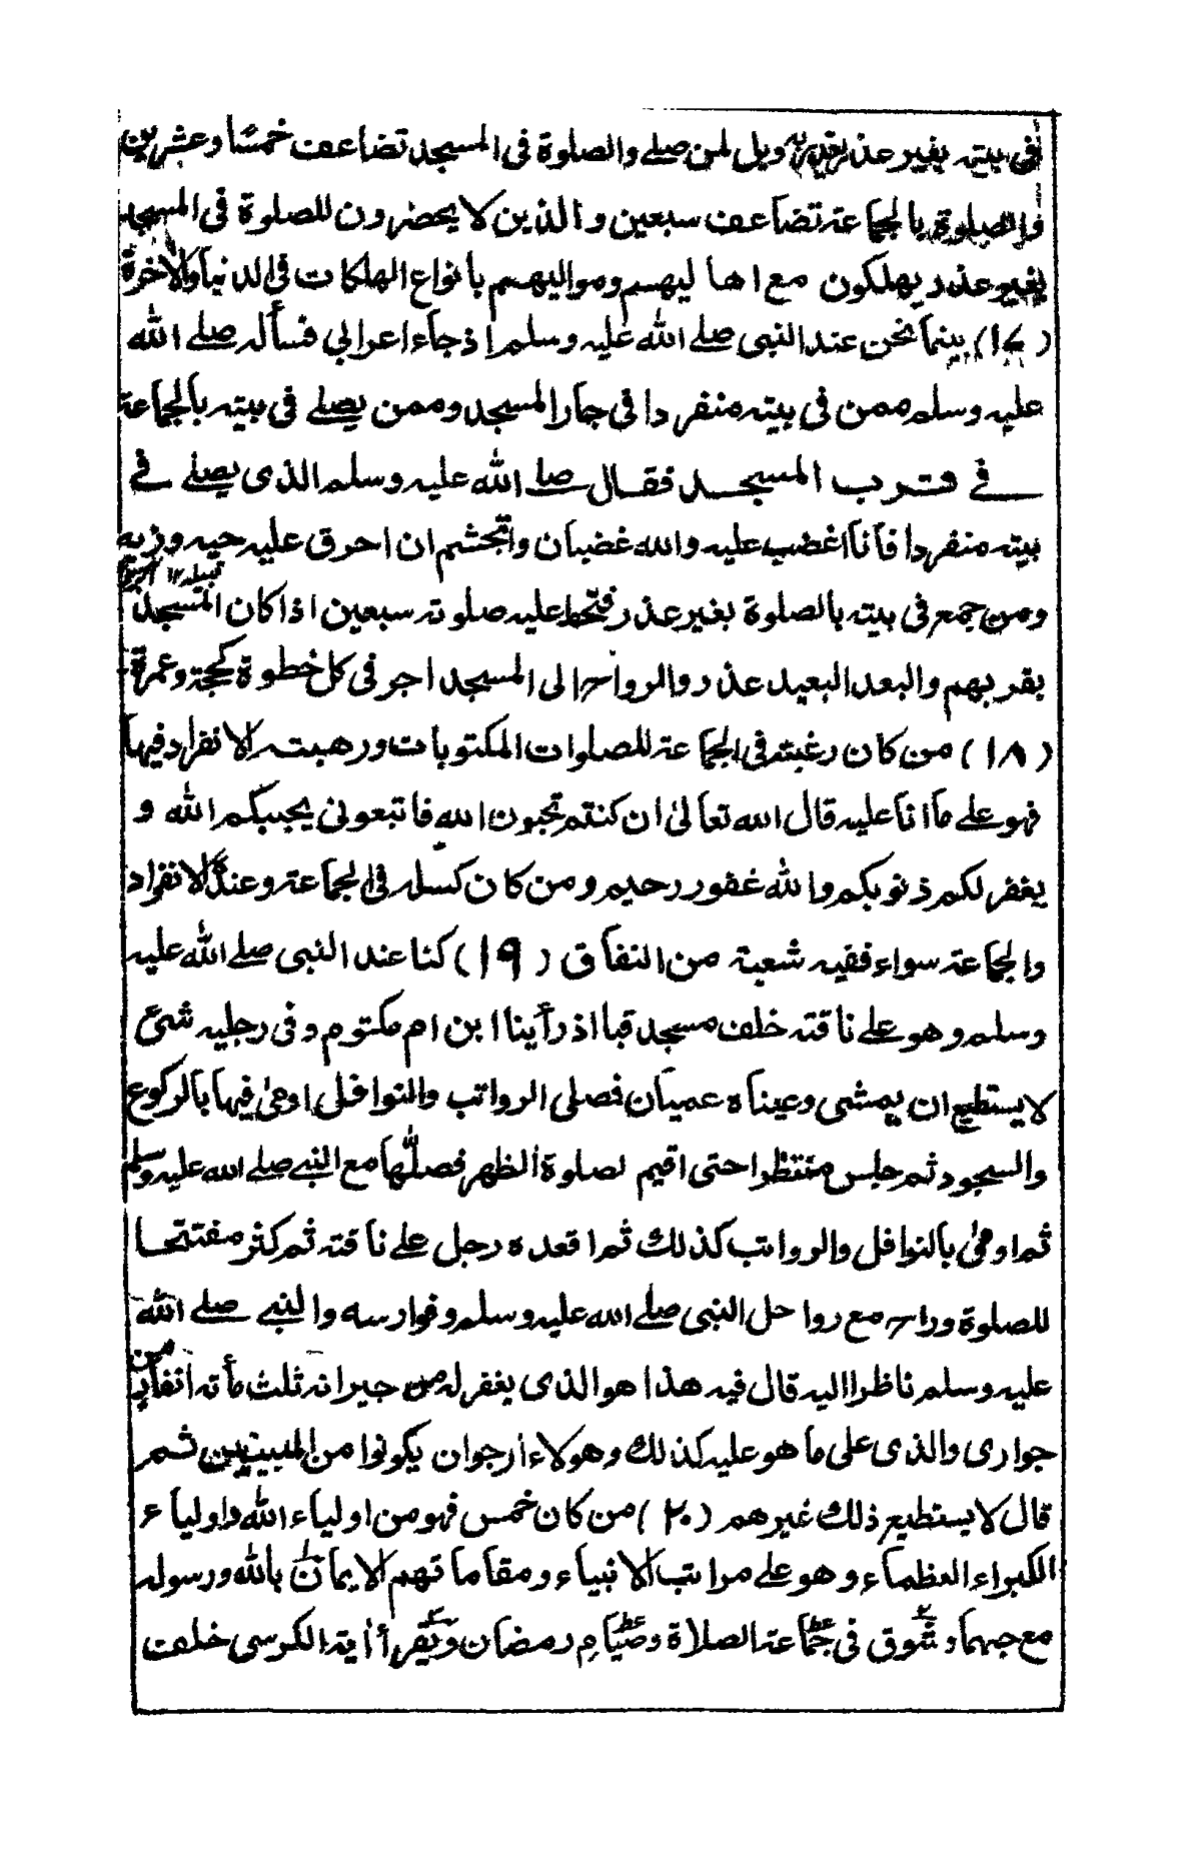 فى بيته بغير عذر ويل لمن صلے والصلوة فى المسجد تضاعف خمسًا وعشرين
والصلوة بالجماعة تضاعف سبعين والذين لا يحضرون للصلوة فى المسجد
بغير عذر يهلكون مع اهاليهم ومواليهم بأنواع الهلكات فى الدنيا والآخرة
(١٧) بينما نحن عند النبى صلے الله عليه وسلم اذ جاء اعرابى فسأله صلے الله
عليه وسلم ممن فى بيته منفردا فى جار المسجد وممن يصلے فى بيته بالجماعة
فے قرب المسجد فقال صلے الله عليه وسلم الذى يصلے فے
بيته منفردا فأنا اغضب عليه والله غضبان واتجشم ان احرق عليه حيه وزيه
ومن جمع فى بيته بالصلوة بغير عذر عليه صلوته سبعين اذا كان المسجد
بقربهم والبعد البعيد عذر والرواح الى المسجد اجر فى كل خطوة كحجة وعمرة
(١٨) من كان رغبته فى الجماعة للصلوات المكتوبات ورهبته الانفراد فيها
فهو على ما انا عليه قال الله تعالىٰ ان كنتم تحبون الله فاتبعونى يحببكم الله و
يغفر لكم ذنوبكم والله غفور رحيم ومن كان كسله فى الجماعة وعنده الانفراد
والجماعة سواء ففيه شعبة من النفاق (١٩) كنا عند النبى صلے الله عليه
وسلم وهو علے ناقته خلف مسجد قبا اذ رأينا ابن ام مكتوم وفى رجليه شئ
لا يستطيع ان يمشى وعيناه عميان فصلى الرواتب والنوافل اوحىٰ فيها بالركوع
والسجود ثم جلس منتظرا حتى اقيم لصلوة الظهر فصلّٰها مع النبے صلے الله عليه وسلم
ثم اوحىٰ بالنوافل والرواتب كذلك ثم اقعده رجل علے ناقته ثم كثر مفتتحا
للصلوة وراح مع رواحل النبى صلے الله عليه وسلم وفوارسه والنبے صلے الله
عليه وسلم ناظرا اليه قال فيه هذا هو الذى يغفر له من جيرانه ثلث مأته انفار من
جوارى والذى على ما هو عليه كذلك وهولاء ارجو ان يكونوا من ثم
قال لا يستطيع ذلك غيرهم (٢٠) من كان خمس فهو من اولياء الله واولياء
الكبراء العظماء وهو علے مراتب الانبياء ومقاماتهم الايمان بالله ورسوله
مع حبهما وشوق فى جماعة الصلاة وصيام رمضان ويقرأ أية الكرسى خلف